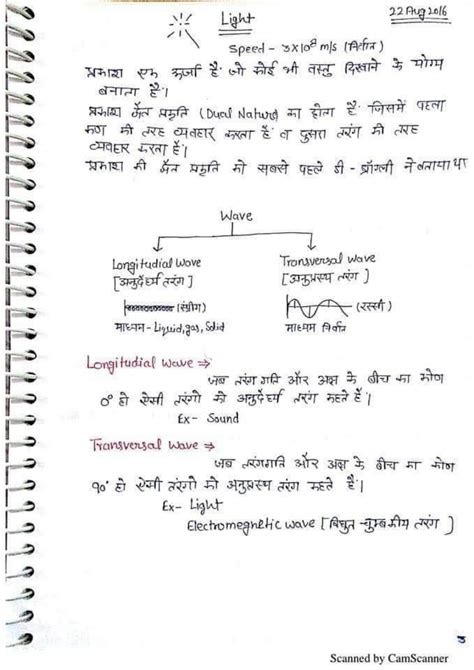 Light
22 Aug 2016
Speed - 3×10⁸ m/s (निर्वात)
प्रकाश एक ऊर्जा है जो कोई भी वस्तु दिखाने के योग्य
बनाता है।
प्रकाश द्वैत प्रकृति (Dual Nature) का होता है जिसमें पहला
कण की तरह व्यवहार करता है व दुसरा तरंग की तरह
व्यवहार करता है।
प्रकाश की द्वैत प्रकृति को सबसे पहले डी-ब्रॉग्ली ने बताया था
Wave
Longitudial Wave
[अनुर्देर्घ्य तरंग]
(स्प्रींग)
माध्यम - Liquid, gas, Solid
Transversal wave
[अनुप्रस्थ तरंग]
(रस्सी)
माध्यम निर्वात
Longitudial wave ⇒
जब तरंग गति और अक्ष के बीच का कोण
0° हो ऐसी तरंगो को अनुर्देर्घ्य तरंग कहते हैं।
Ex - Sound
Transversal wave ⇒
जब तरंगगति और अक्ष के बीच का कोण
९०° हो ऐसी तरंगो को अनुप्रस्थ तरंग कहते हैं।
Ex- Light
Electromegnetic wave [विद्युत-चुम्बकीय तरंग]
3
Scanned by CamScanner